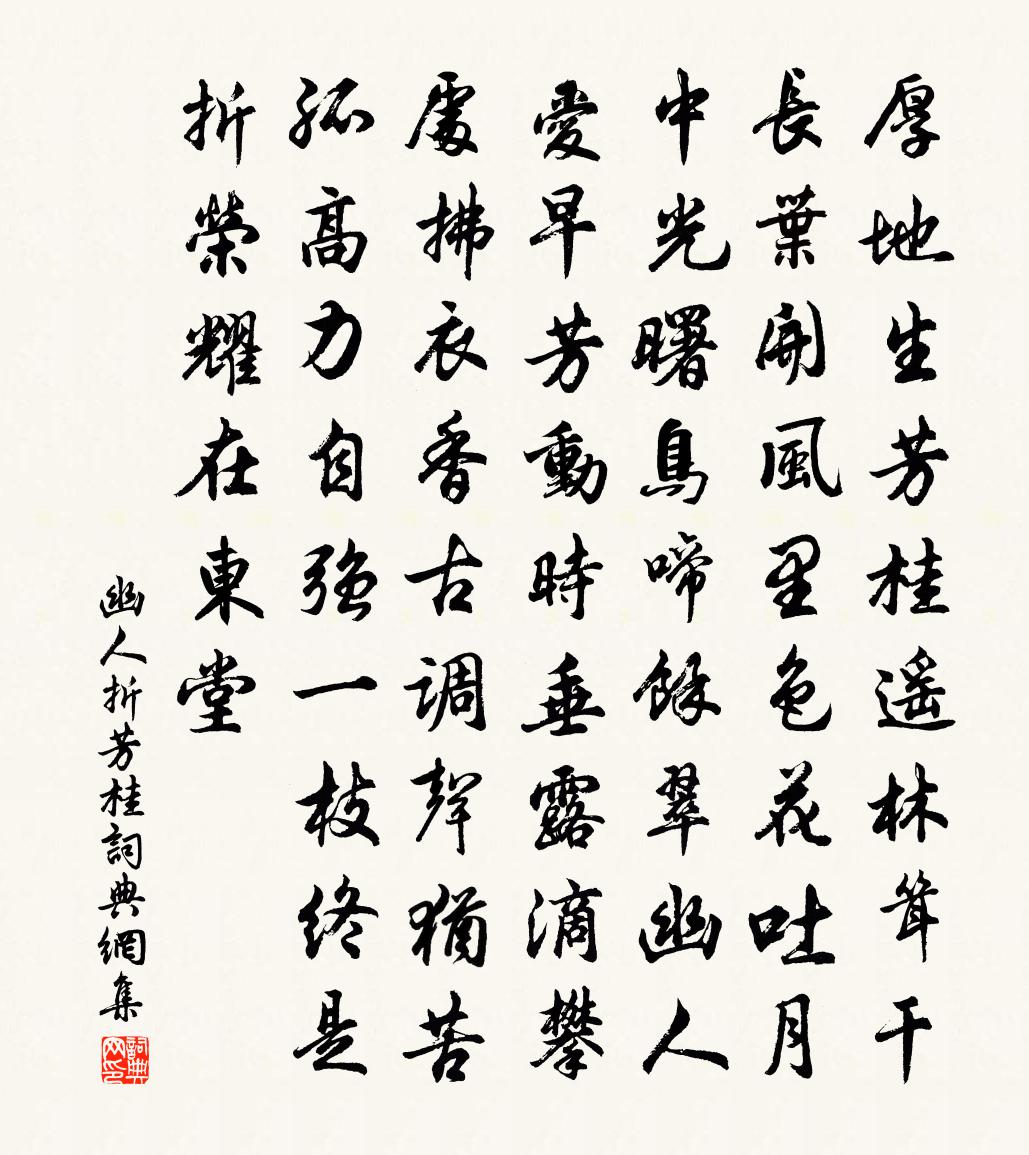 厚地生芳桂遥林聳干
長葉開風里色花吐月
中光曙鳥啼餘翠幽人
愛早芳動時垂露滴攀
處拂衣香古調聲猶苦
孤高力自強一枝終是
折榮耀在東堂
幽人折芳桂詞典網集
詞典网印